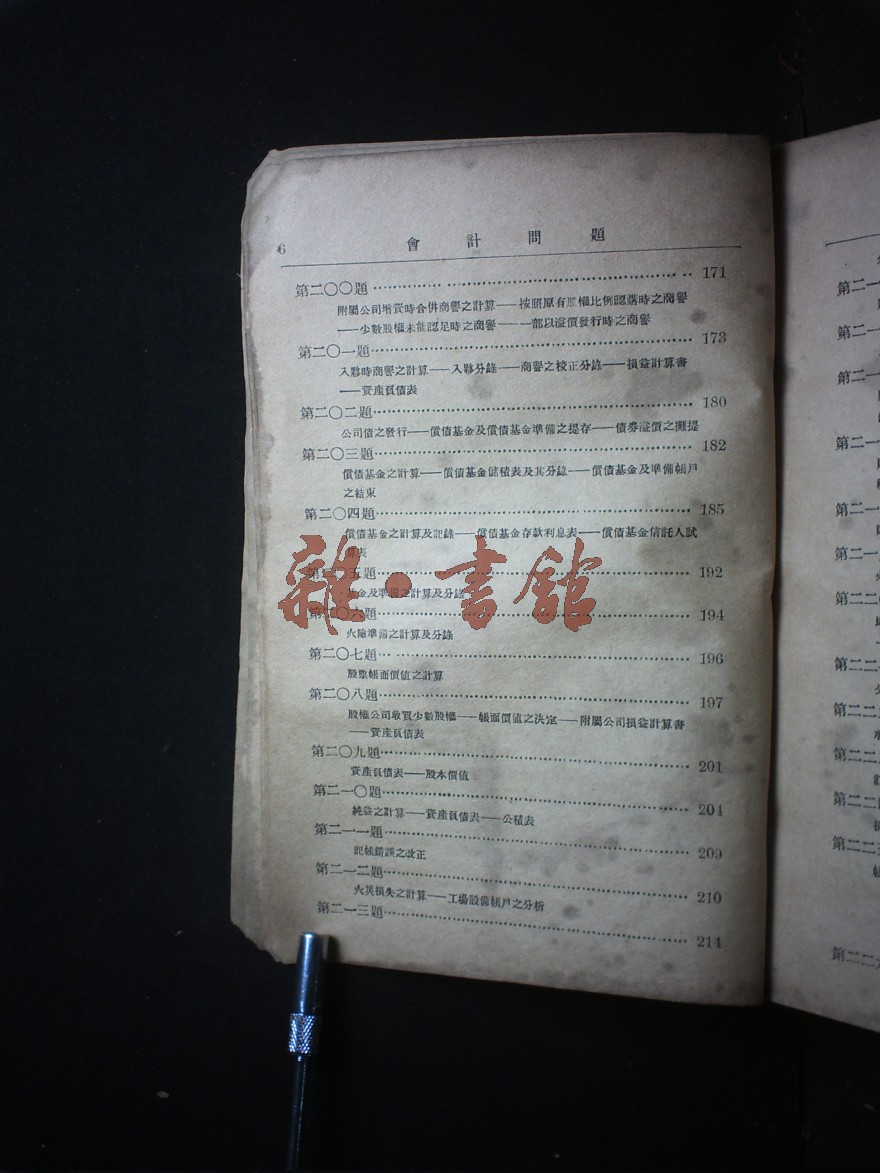 6 會計問題
第二〇〇題 171
附屬公司增資時合併商譽之計算——按照原有股權比例認購時之商譽
——少數股權未能認足時之商譽——一部以溢價發行時之商譽
第二〇一題 173
入夥時商譽之計算——入夥分錄——商譽之校正分錄——損益計算書
——資產負債表
第二〇二題 180
公司債之發行——償債基金及償債基金準備之提存——債券溢價之攤提
第二〇三題 182
償債基金之計算——償債基金儲積表及其分錄——償債基金及準備帳戶
之結束
第二〇四題 185
償債基金之計算及記錄——償債基金存款利息表——償債基金信託人試
算表
第二〇五題 192
基金及準備之計算及分錄
第二〇六題 194
火險準備之計算及分錄
第二〇七題 196
股票帳面價值之計算
第二〇八題 197
股權公司收買少數股權——帳面價值之決定——附屬公司損益計算書
——資產負債表
第二〇九題 201
資產負債表——股本價值
第二一〇題 204
純益之計算——資產負債表——公積表
第二一一題 209
記帳錯誤之改正
第二一二題 210
火災損失之計算——工場設備帳戶之分析
第二一三題 214
雜·書館
第二一
第二一
第二一
第二一
第二一
第二一
第二二
第二二
第二二
第二二
第二二
第二二
第二二